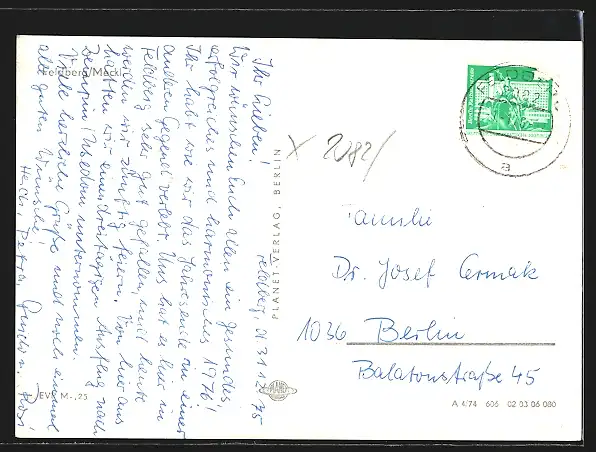 Feldberg/Meckl.
Feldberg, d. 31.12.75
Ihr Lieben!
Wir wünschen Euch allen ein gesundes,
erfolgreiches und harmonisches 1976!
Ihr habt wie wir das Jahresende in einer
anderen Gegend verlebt. Uns hat es hier in
Feldberg sehr gut gefallen, und heute
werden wir zünftig feiern. Von hier aus
hatten wir einen dreitägigen Ausflug nach
Zempin/Usedom unternommen.
Viele herzliche Grüße und noch einmal
alle guten Wünsche!
Petra
EVP M -,25
PLANET-VERLAG, BERLIN
PLANET
X 2082/
Familie
Dr. Josef Cermak
1036 Berlin
Balatonstraße 45
A 4/74 606 02 03 06 080